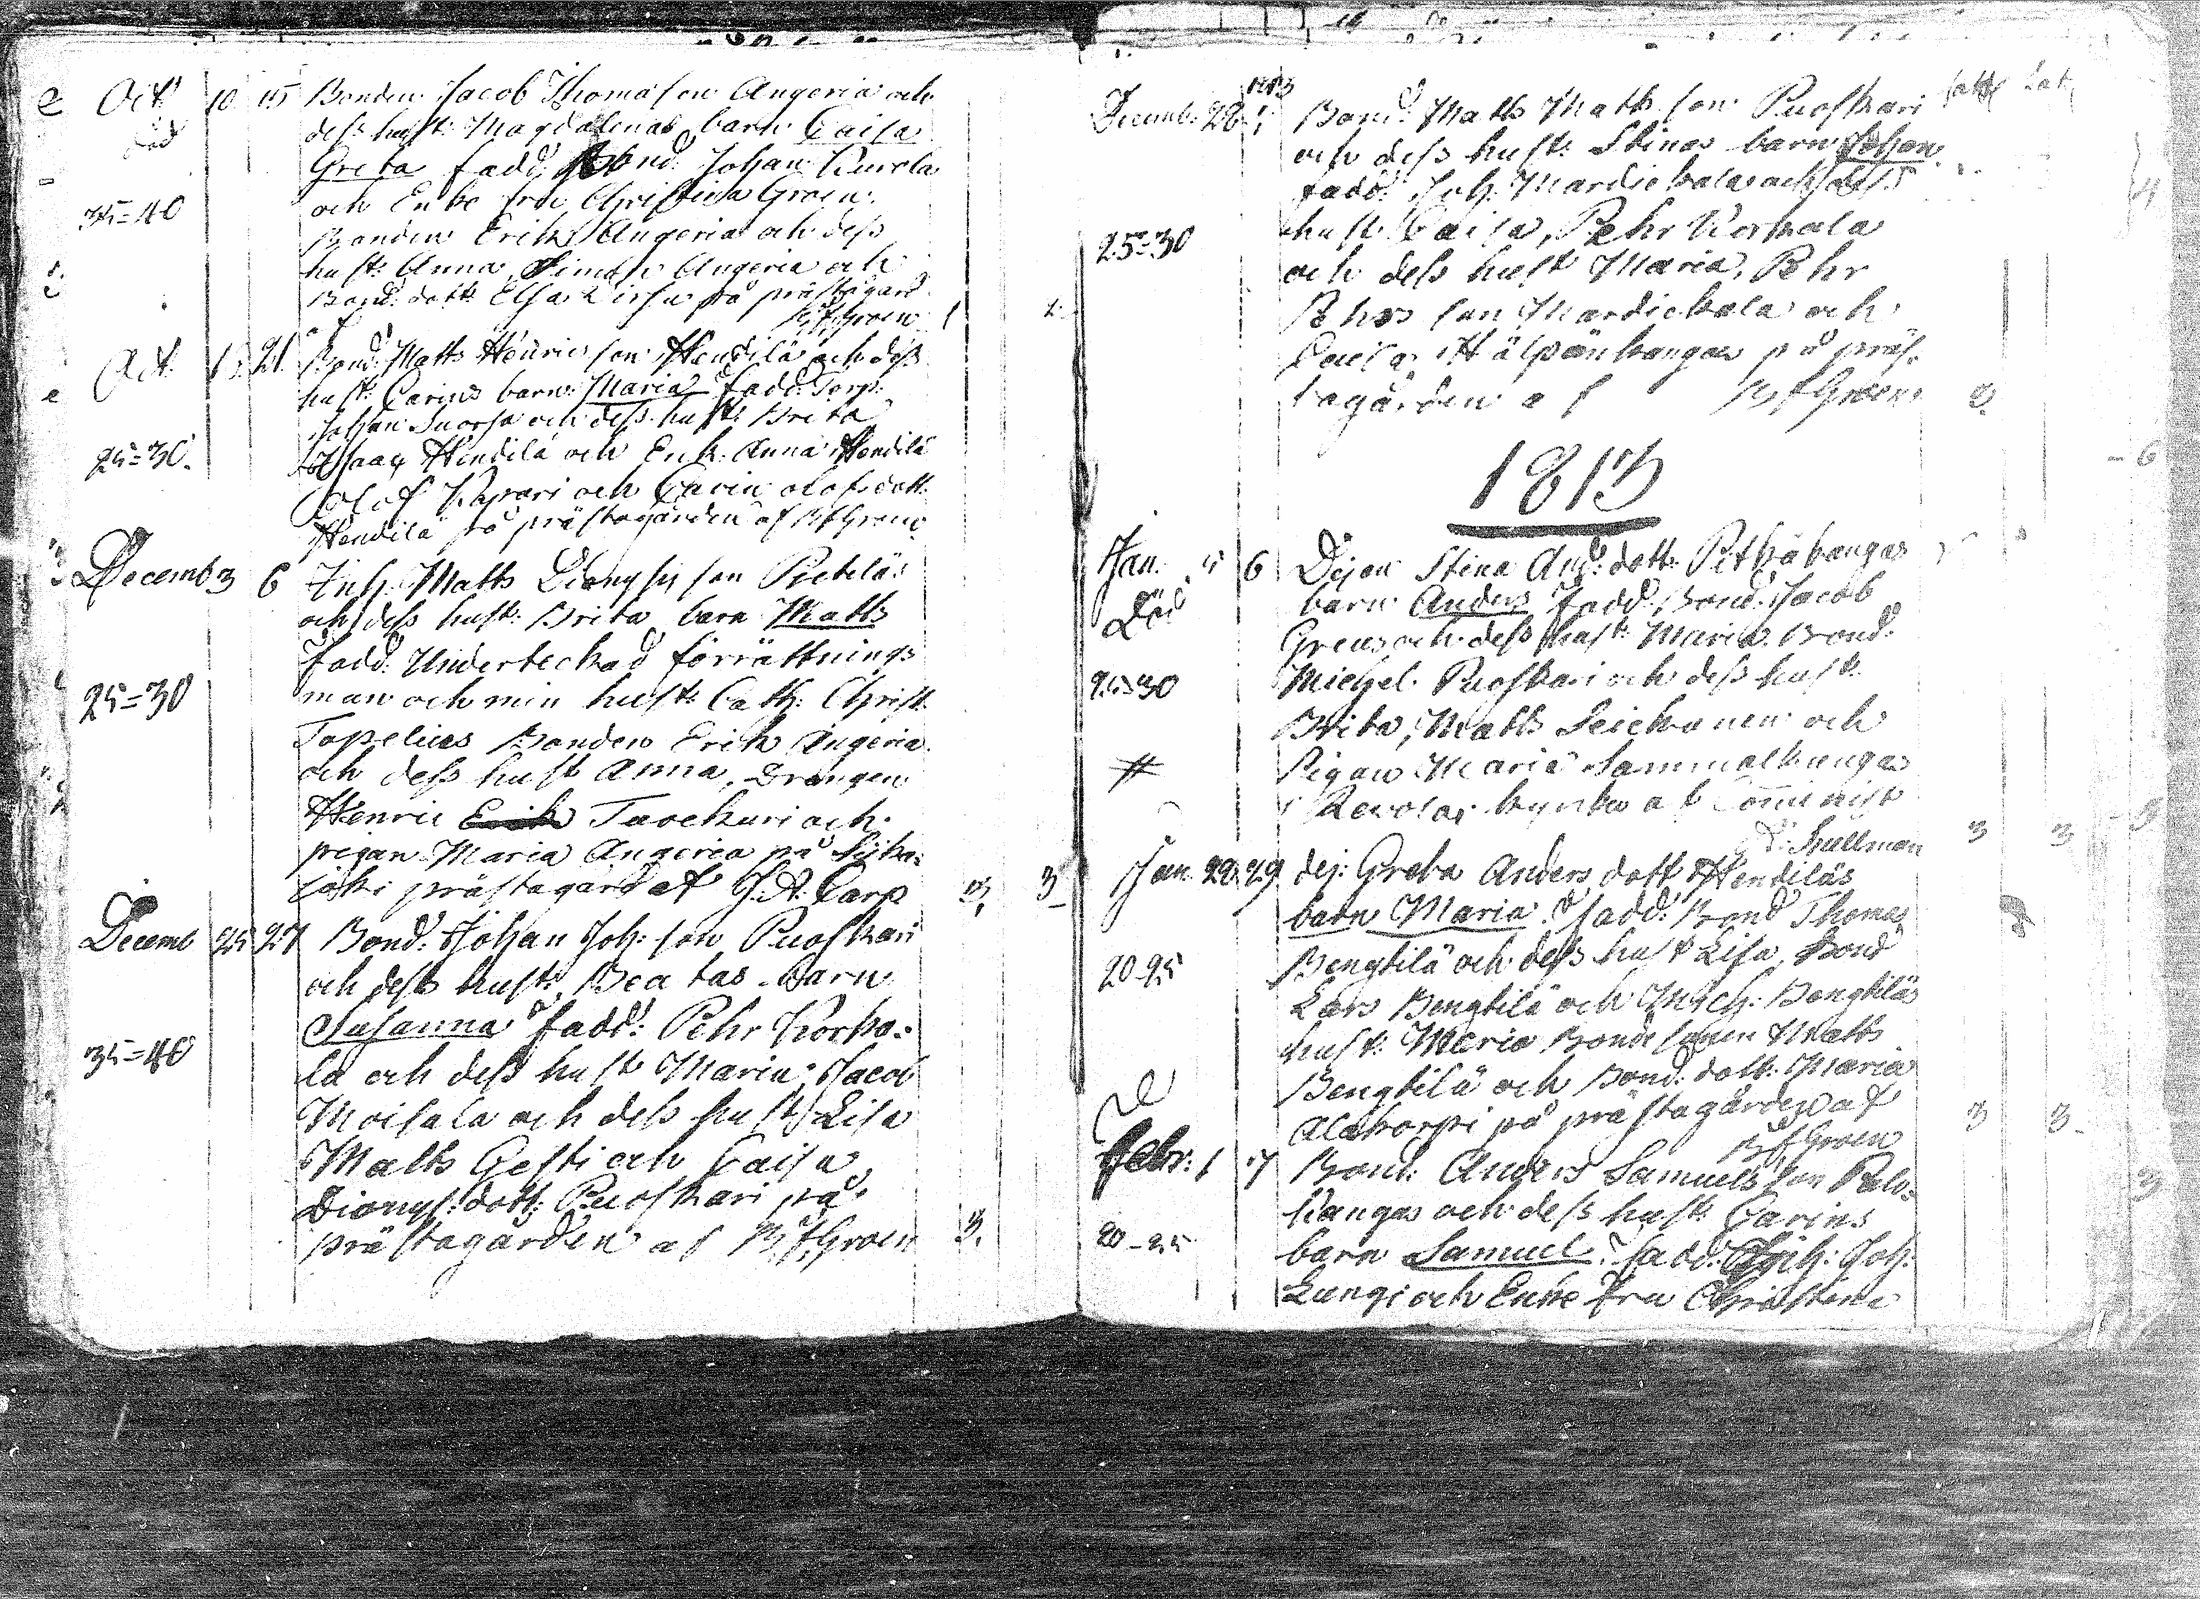 Oct. 10 15 Bonden Jacob Thomasson Angeria och
Död
dess hust: Magdalenas barn Caisa
Greta fadd: Bond: Johan Kurela
35=40
och Enke fru Christina Groen.
Bonden Erik Angeria och dess
hust: Anna, Simon Angeria och
Bond: dott: Elsa på prästagård
af Groen 1
Oct. 21. Bond: Matts Henricsson Hendilä och dess
hust: Carins barn: Maria fadd: Torp:
Johan och dess hust: Brita
25=30.
Isaac Hendilä och Enk. Anna Hendilä
Olof och Carin olofsdott:
Hendilä på prästagården af Groen
Decemb 3 6 Inh: Matts Dionysii son Pietilä
och dess hust: Brita barn Matts
Fadd: Undertecknad förrättnings
25=30
man och min hust: Cath: Christ:
Topelius Bonden Erik Angeria.
och dess hust Anna, Drängen
Henric Erik Tuockuri och
pigan Maria Angeria på Sijka:
joki prästagård af J. A. Carp 3. 3
Decemb 25 27 Bond: Johan Joh: son Puoskari
och dess hust: Beatas barn
Susanna Fadd: Pehr Korka:
35=40
la och dess hust Maria, Jacob
Moisala och dess hust Lisa
Matts Gesti och Caisa
Dionys: dott: Puoskari på
prästagården af Groen 3.
1813
Decemb: 28 Bond: Matts Matts son Puoskari
och dess hust: Stinas barn Johan
fadd: Joh: Mardickala och dess
25=30
hust: Caisa, Pehr Korkala
och dess hust Maria, Pehr
Pehrs son Mardickala och
Caisa Hälpänkangas på präs:
tagården af Groen 3.
1813
Jan. 5 6 Dejan Stina And: dott: Pitkäkangas
Död
barn Anders Fadd: Bond: Jacob
Greus och dess hust: Maria. Bond:
25=30
Michel Puoskari och dess hust:
Brita, Matts Seickanen och
#
Pigan Maria Sammalkangas
i Revolax kyrka af Comminist
Snellman 3 3
Jan. 22. 29 dej: Greta Anders dott Hendiläs
barn Maria. Fadd: Bond Thomas
Bengtilä och dess hust Lisa, Bond
20-25
Lars Bengtilä och Mich: Bengtiläs
hust: Maria Bondesonen Matts
Bengtilä och Bond: dott: Maria
Alakorpi på prästagården af 3 3
Groen
Febr: 1 7 Bond: Anders Samuels son Pelo:
kangas och dess hust: Carins
20-25
barn Samuel. Fadd: Joh:
Lungi och Enke Fru Christina